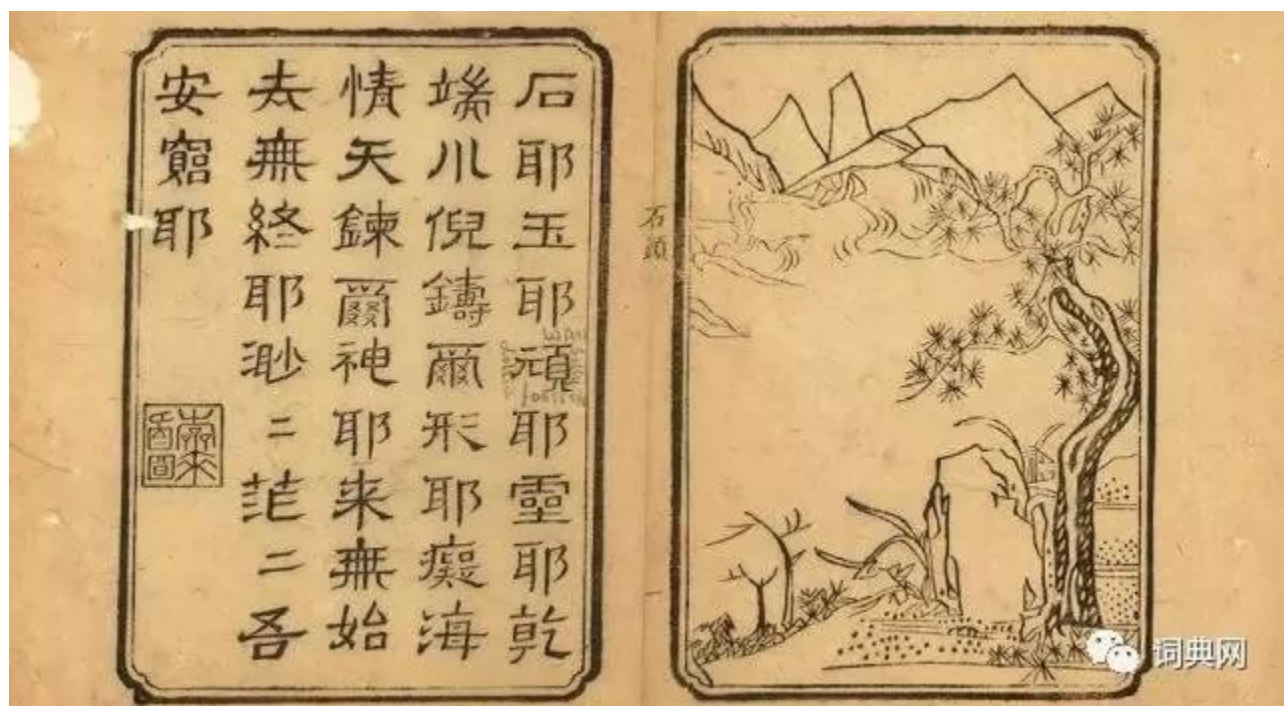 石頭
石耶玉耶頑耶靈耶乾
端川倪鑄爾形耶癡海
情天鍊爾神耶来無始
去無終耶渺二茫二吾
安窮耶
词典网